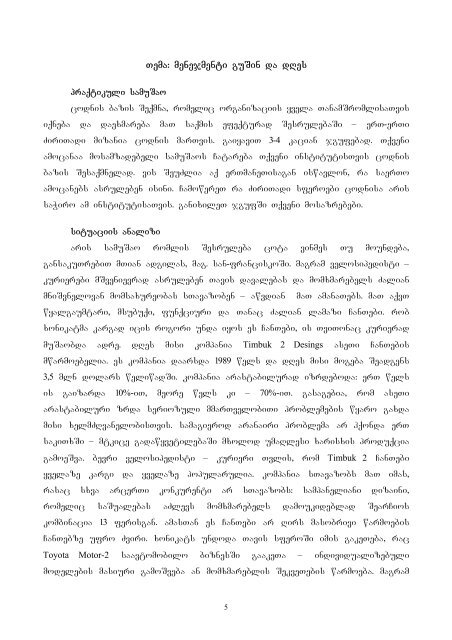 თემა: მენეჯმენტი გუშინ და დღეს
პრაქტიკული სამუშაო
ცოდნის ბაზის შექმნა, რომელიც ორგანიზაციის ყველა თანამშრომლისათვის
იქნება და დაეხმარება მათ საქმის ეფექტურად შესრულებაში – ერთ-ერთი
ძირითადი მიზანია ცოდნის მართვის. გაიყავით 3-4 კაციან ჯგუფებად. თქვენი
ამოცანაა მოსამზადებელი სამუშაოს ჩატარება თქვენი ინსტიტუტისთვის ცოდნის
ბაზის შესაქმნელად. ვის შეუძლია აქ ერთმანეთისაგან ისწავლონ, რა საერთო
ამოცანებს ასრულებენ ისინი. ჩამოწერეთ რა ძირითადი სფეროები ცოდნისა არის
საჭირო ამ ინსტიტუტისათვის. განიხილეთ ჯგუფში თქვენი მოსაზრებები.
სიტუაციის ანალიზი
არის სამუშაო რომლის შესრულება ცოტა ვინმეს თუ მოუნდება,
განსაკუთრებით მთიან ადგილას, მაგ. სან-ფრანცისკოში. მაგრამ ველოსიპედისტი –
კურიერები მშვენივრად ასრულებენ თავის დავალებას და მომხმარებელს ძალიან
მნიშვნელოვან მომსახურეობას სთავაზობენ – აწვდიან მათ ამანათებს. მათ აქვთ
წყალგაუმტარი, მსუბუქი, ფუნქციური და თანაც ძალიან ლამაზი ჩანთები. რობ
ხონიკატმა კარგად იცის როგორი უნდა იყოს ეს ჩანთები, ის თვითონაც კურიერად
მუშაობდა ადრე. დღეს მისი კომპანია Timbuk 2 Desings ასეთი ჩანთების
მწარმოებელია. ეს კომპანია დაარსდა 1989 წელს და დღეს მისი მოგება შეადგენს
3,5 მლნ დოლარს წელიწადში. კომპანია არასტაბილურად იზრდებოდა: ერთ წელს
ის გაიზარდა 10%-ით, მეორე წელს კი – 70%-ით. გასაგებია, რომ ასეთი
არასტაბილური ზრდა სერიოზული მმართველობითი პრობლემების წყარო გახდა
მისი ხელმძღვანელობისთვის. სამაგიეროდ არანაირი პრობლემა არ ჰქონდა ერთ
საკითხში – მტკიცე გადაწყვეტილებაში მხოლოდ უმაღლესი ხარისხის პროდუქცია
გამოეშვა. ბევრი ველოსიპედისტი – კურიერი თვლის, რომ Timbuk 2 ჩანთები
ყველაზე კარგი და ყველაზე პოპულარულია. კომპანია სთავაზობს მათ იმას,
რასაც სხვა არცერთი კონკურენტი არ სთავაზობს: სამპანელიანი დიზაინი,
რომელიც საშუალებას აძლევს მომხმარებელს დამოუკიდებლად შეარჩიოს
კომბინაცია 13 ფერისგან. ამასთან ეს ჩანთები არ ღირს მასობრივი წარმოების
ჩანთებზე უფრო ძვირი. ხონიკატს უნდოდა თავის სფეროში იმის გაკეთება, რაც
Toyota Motor-2 საავტომობილო ბიზნესში გააკეთა – ინდივიდუალიზებული
მოდელების მასიური გამოშვება ან მომხმარებლის შეკვეთების წარმოება. მაგრამ
5